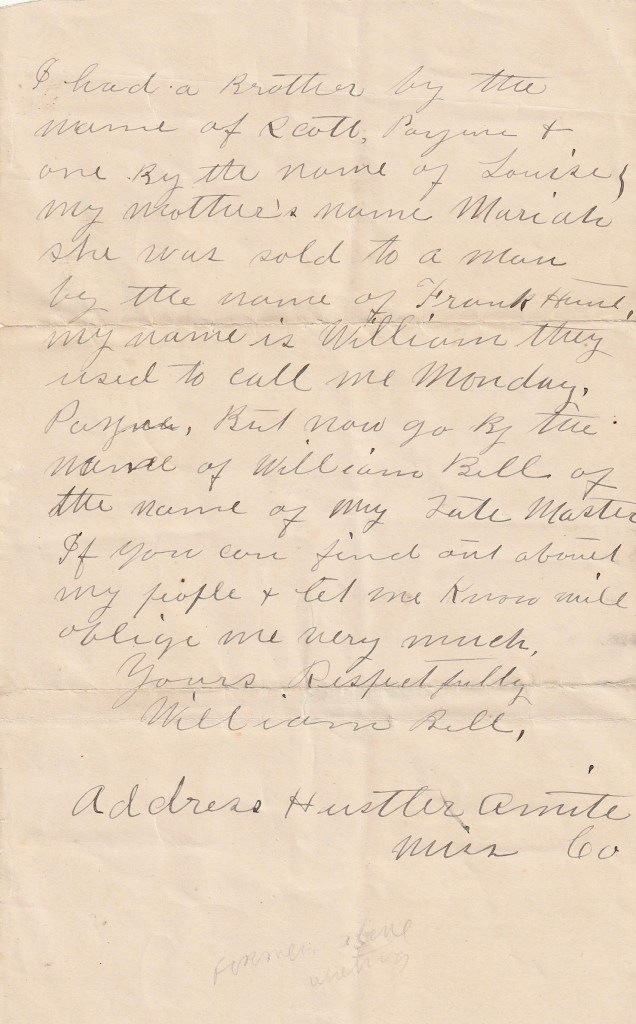 I had a Brother by the
name of Scott, Payne &
one By the name of Louise,
my mother's name Mariah
she was sold to a man
by the name of Frank Hune,
my name is William they
used to call me Monday,
Payne, But now go By the
name of William Bell of
the name of my Late Master
If you can find out about
my people & let me Know will
oblige me very much,
Yours Respectfully
William Bell,
Address Hustler Amite
Miss Co
Former slave
writing